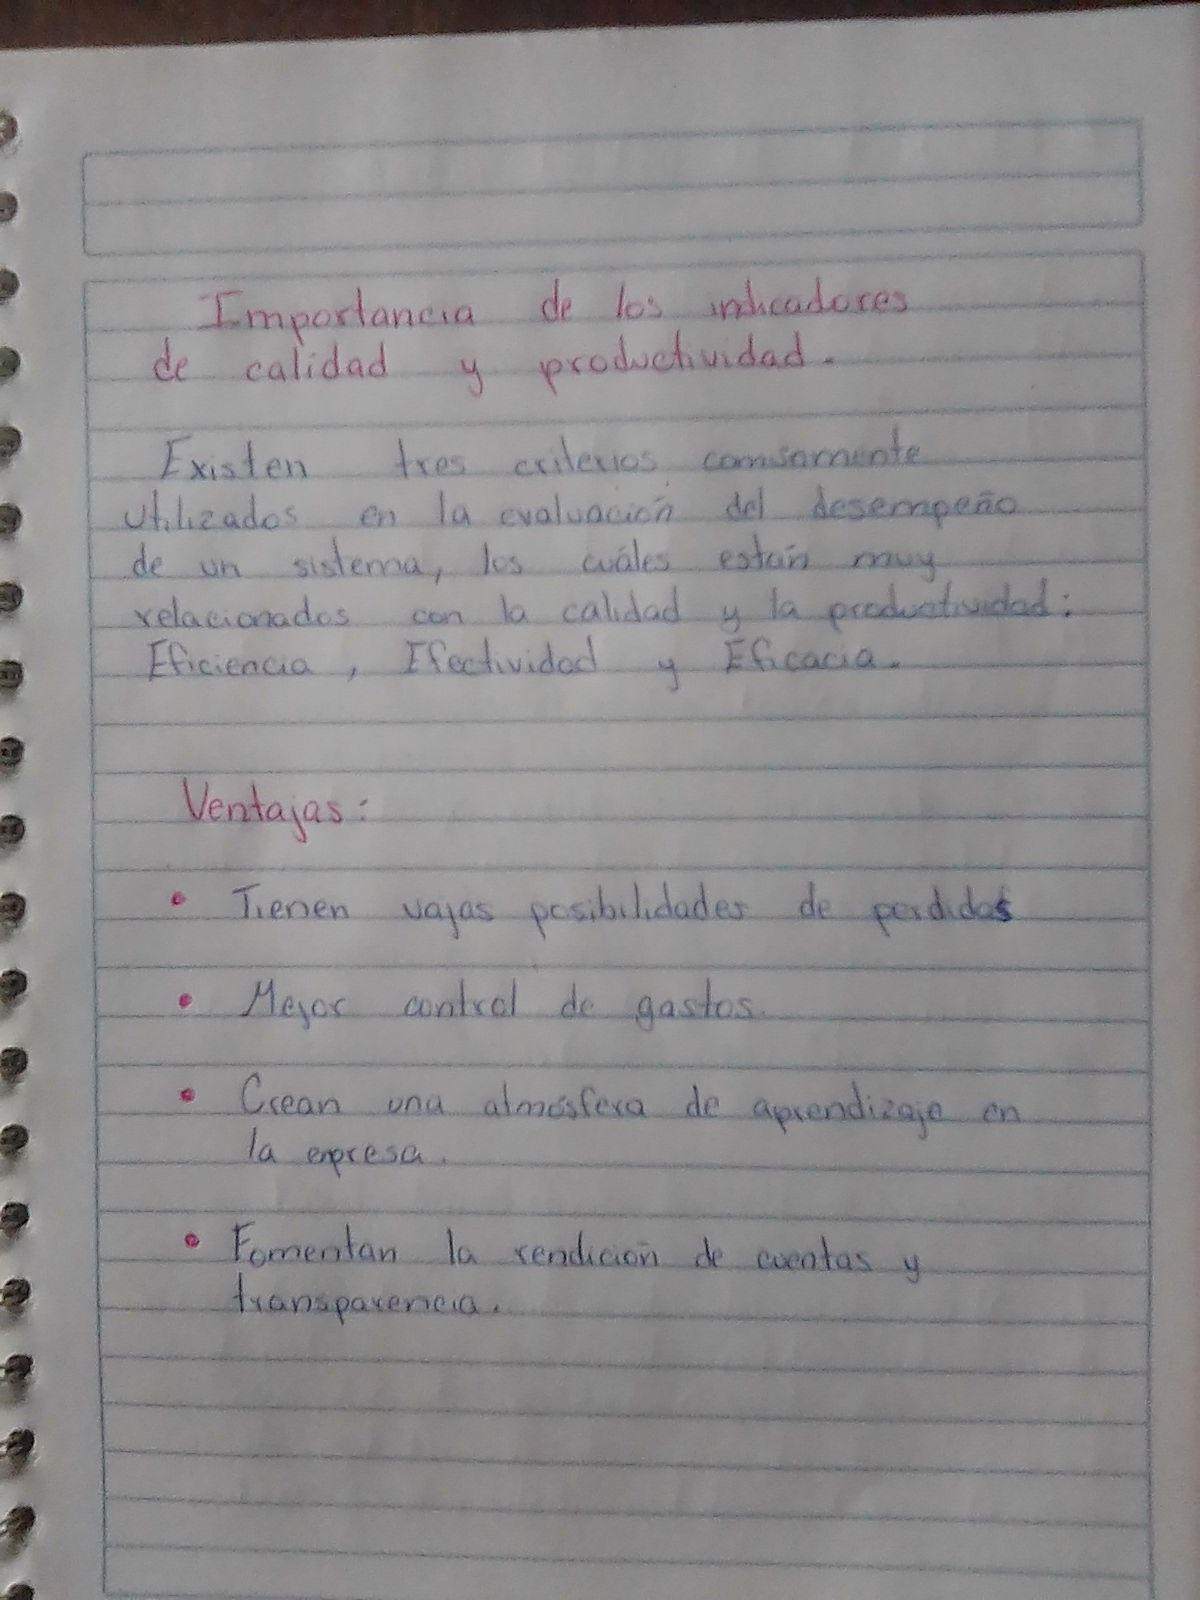 Importancia de los indicadores
de calidad y productividad.
Existen tres criterios comúsamente
utilizados en la evaluación del desempeño
de un sistema, los cuáles están muy
relacionados con la calidad y la productividad:
Eficiencia, Efectividad y Eficacia.
Ventajas:
• Tienen vajas posibilidades de perdidas
• Mejor control de gastos.
• Crean una atmósfera de aprendizaje en
la enpresa.
• Fomentan la rendición de cuentas y
transparencia.